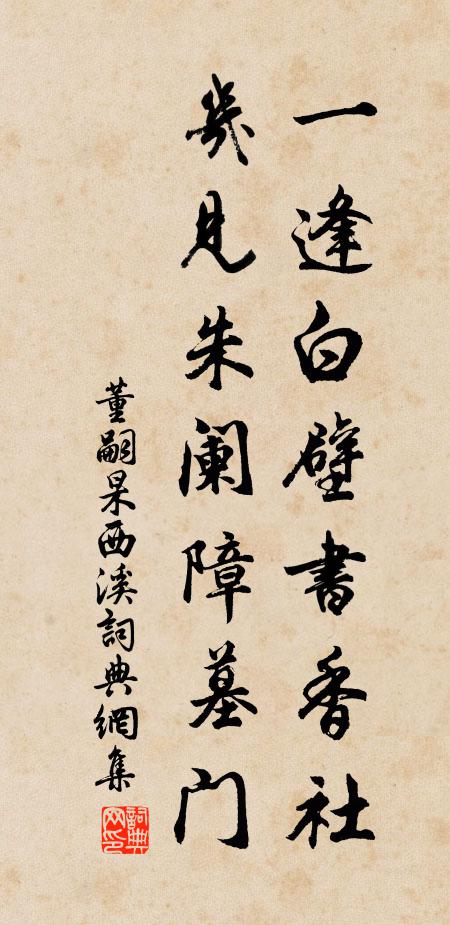 一逢白壁書香社
幾見朱闌障墓門
董嗣杲西溪詞典網集
詞典网印